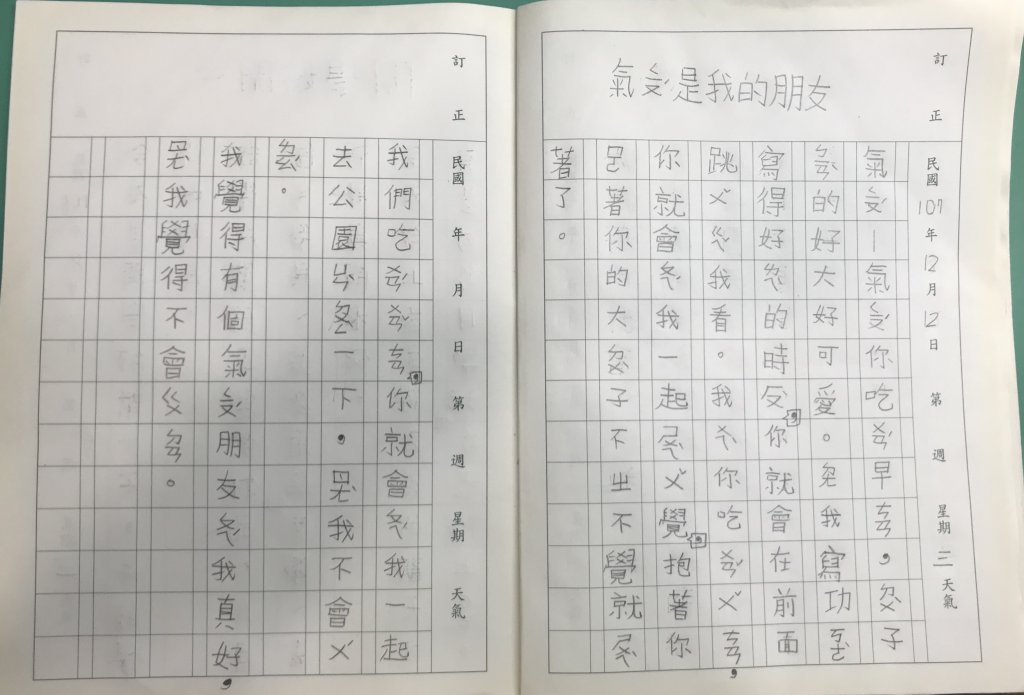 氣ㄑㄧㄡˊ是我的朋友
民國107年12月12日第週星期三天氣
訂正
氣ㄑㄧㄡˊ—氣ㄑㄧㄡˊ你吃ㄨㄢˊ早ㄘㄢ,ㄉㄨˋ子
的好大好可愛。我寫功
寫得好ㄌㄟˋ的時ㄏㄡˋ,你就會在前面
跳ㄨˇㄍㄟˇ我看。我ㄏㄢˋ你吃ㄨㄢˊㄨˇㄘㄢ,
你就會ㄆㄟˊ我一起ㄕㄨㄟˋㄨˇ覺,抱著你
著你的大ㄉㄨˋ子不出不覺就ㄕㄨㄟˋ
著了。
訂正
民國年月日第週星期天氣
我們吃ㄨㄢˊㄨㄢˇㄘㄢ,你就會ㄆㄟˊ我一起
去公園一下,ㄖㄤˋ我不會ㄨˊ
ㄌㄧㄠˊ。
我覺得有個氣ㄑㄧㄡˊ朋友ㄆㄟˊ我真好,
ㄖㄤˋ我覺得不會ㄍㄨㄉㄢ。